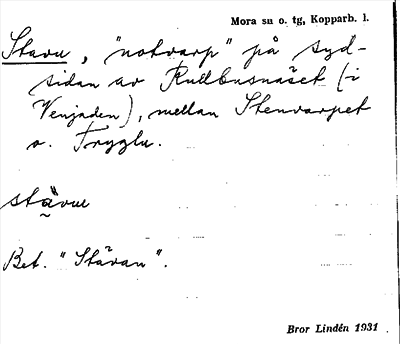 Mora su o. tg, Kopparb. l.
Stavu, "notvarp" på syd-
sidan av Kullbusnäset (i
Venjaden), mellan Stenvarpet
o. Tryglu.
stävue
Bet. "Stävan".
Bror Lindén 1931